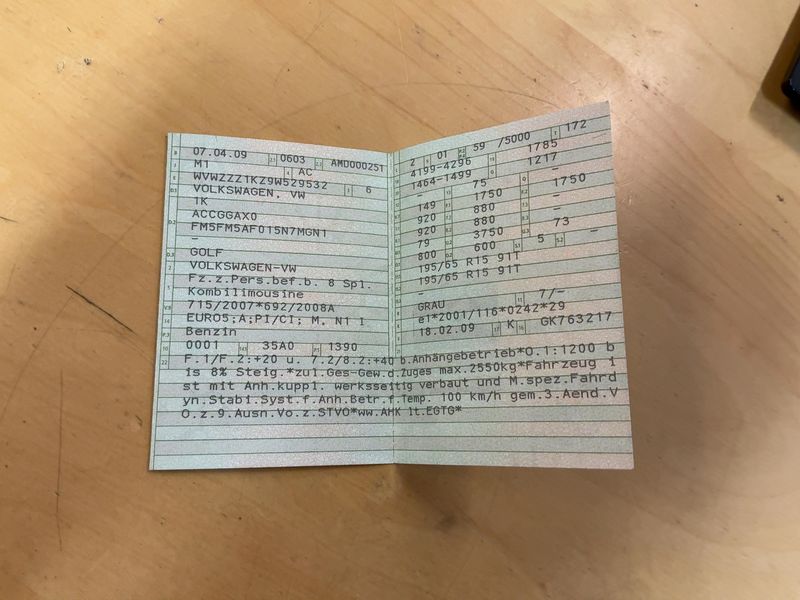 07.04.09 0603 AMD000251
M1 AC
WVWZZZ1KZ9W529532 6
VOLKSWAGEN, VW
1K
ACCGGAX0
FM5FM5AF015N7MGN1
–
GOLF
VOLKSWAGEN-VW
Fz.z.Pers.bef.b. 8 Spl.
Kombilimousine
715/2007*692/2008A
EURO5;A;PI/CI; M, N1 I
Benzin
0001 35A0 1390
2 01 59 /5000 172
4199-4296 1785
1464-1499 1217
– 75 –
149 1750 1750
920 880 –
920 880 –
79 3750 73
800 600 5 –
195/65 R15 91T
195/65 R15 91T
–
GRAU 7/–
e1*2001/116*0242*29
18.02.09 K GK763217
F.1/F.2:+20 u. 7.2/8.2:+40 b.Anhängebetrieb*O.1:1200 b
is 8% Steig.*zul.Ges-Gew.d.Zuges max.2550kg*Fahrzeug i
st mit Anh.kuppl. werksseitig verbaut und M.spez.Fahrd
yn.Stabi.Syst.f.Anh.Betr.f.Temp. 100 km/h gem.3.Aend.V
O.z.9.Ausn.Vo.z.STVO*ww.AHK lt.EGTG*